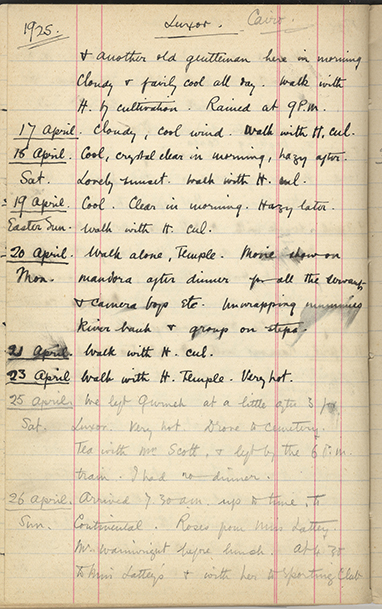 1925. Luxor. Cairo.
& another old gentleman here in morning
Cloudy & fairly cool all day. Walk with
H. by cultivation. Rained at 9 P.M.
17 April. Cloudy, cool wind. Walk with H. cul.
18 April. Cool, crystal clear in morning, hazy after.
Sat. Lovely sunset. Walk with H. cul.
19 April. Cool. Clear in morning. Hazy later.
Easter Sun. Walk with H. cul.
20 April. Walk alone, Temple. Movie show on
Mon. mandara after dinner for all the servants
& camera boys etc. Unwrapping mummies
River bank & group on steps.
21 April. Walk with H. cul.
23 April Walk with H. Temple. Very hot.
25 April. We left Gurneh at a little after 3 for
Sat. Luxor. Very hot. Drove to Cemetery.
Tea with Mr Scott, & left by the 6 P.M.
train. I had no dinner.
26 April. Arrived 7.30 a.m. up to time, to
Sun. Continental. Roses from Miss Lattey
Mr. Wainwright before lunch. At 4.30
to Miss Lattey's & with her to Sporting Club